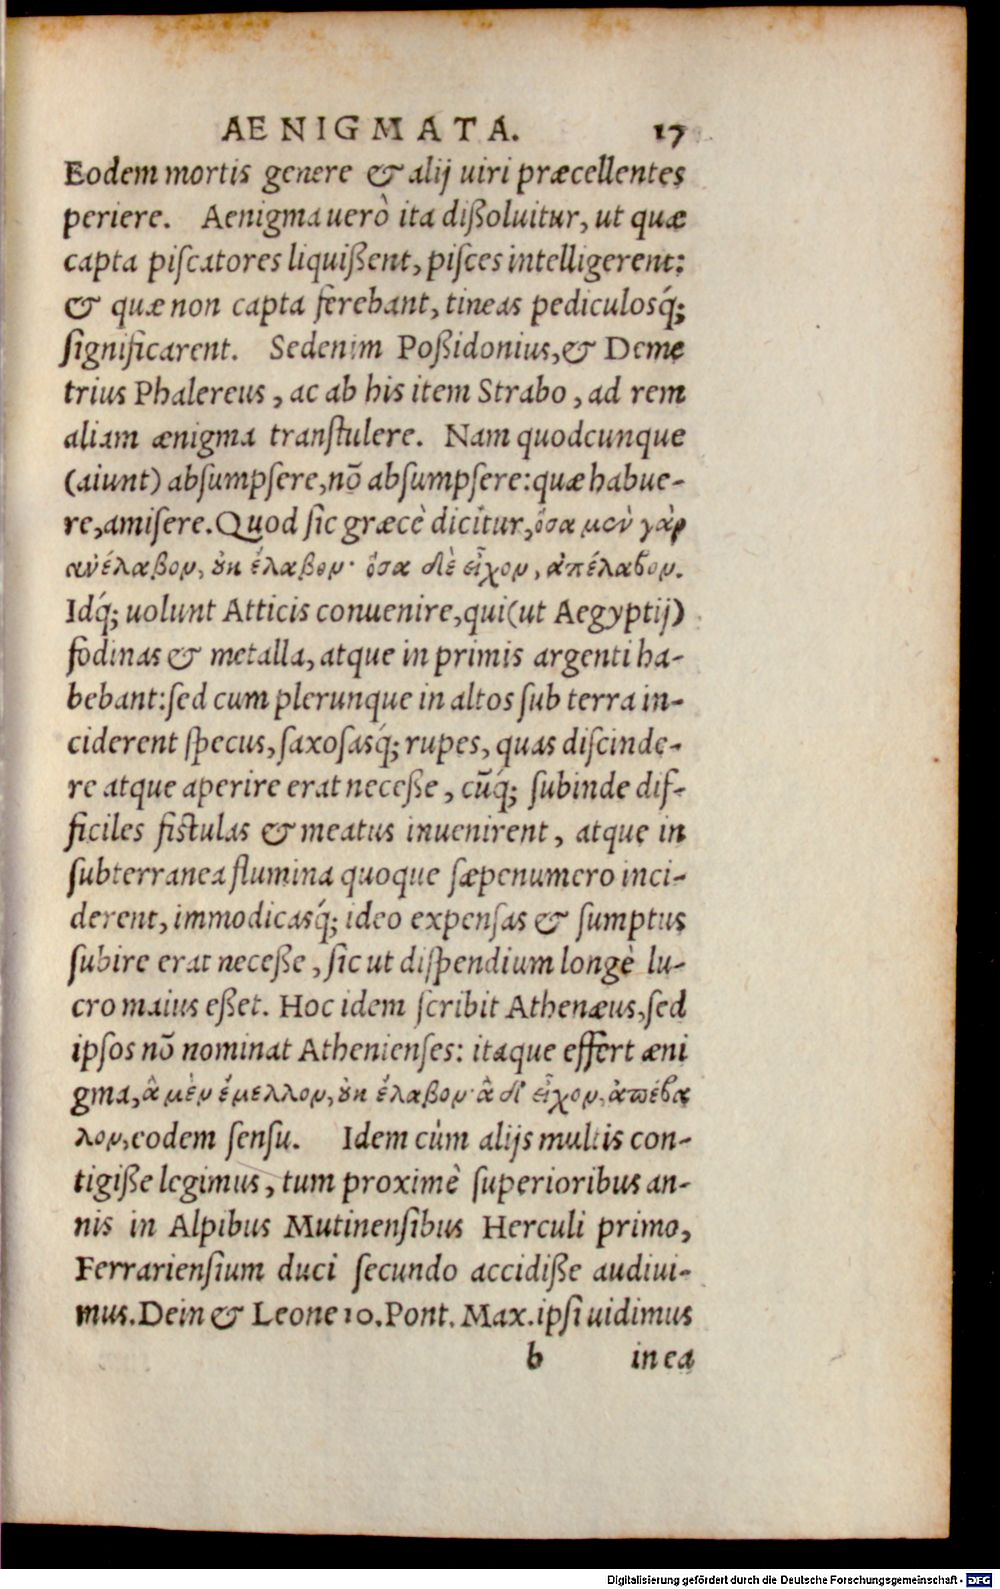 AENIGMATA. 17
Eodem mortis genere & alij uiri præcellentes
periere. Aenigma uerò ita dißoluitur, ut quæ
capta piſcatores liquißent, piſces intelligerent:
& quæ non capta ferebant, tineas pediculosq́;
ſignificarent. Sedenim Poßidonius, & Deme
trius Phalereus, ac ab his item Strabo, ad rem
aliam ænigma tranſtulere. Nam quodcunque
(aiunt) abſumpſere, nō abſumpſere: quæ habue-
re, amiſere. Quod ſic græcè dicitur, ὅσα μὲν γὰρ
ἀνέλαβον, ȣ̓κ ἔλαβον· ὅσα δὲ εἶχον, ἀπέλαβον.
Idq́; uolunt Atticis conuenire, qui (ut Aegyptij)
fodinas & metalla, atque in primis argenti ha-
bebant: ſed cum plerunque in altos ſub terra in-
ciderent ſpecus, ſaxoſasq́; rupes, quas diſcinde-
re atque aperire erat neceße, cūq́; ſubinde dif-
ficiles fiſtulas & meatus inuenirent, atque in
ſubterranea flumina quoque ſæpenumero inci-
derent, immodicasq́; ideo expenſas & ſumptus
ſubire erat neceße, ſic ut diſpendium longè lu-
cro maius eßet. Hoc idem ſcribit Athenæus, ſed
ipſos nō nominat Athenienſes: itaque effert æni
gma, ἃ μὲν ἔμελλον, ȣ̓κ ἔλαβον· ἃ δ' εἶχον, ἀπέβα
λον, eodem ſenſu. Idem cùm alijs multis con-
tigiße legimus, tum proximè ſuperioribus an-
nis in Alpibus Mutinenſibus Herculi primo,
Ferrarienſium duci ſecundo accidiße audiui-
mus. Dein & Leone 10. Pont. Max. ipſi uidimus
b in ea
Digitalisierung gefördert durch die Deutsche Forschungsgemeinschaft - DFG